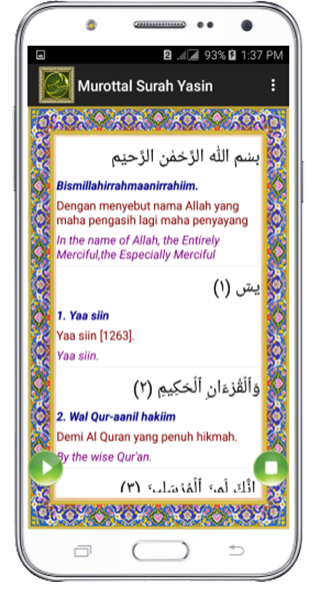 93% 1:37 PM
Murottal Surah Yasin
بِسْمِ اللهِ الرَّحْمٰنِ الرَّحِيْمِ
Bismillahirrahmaanirrahiim.
Dengan menyebut nama Allah yang
maha pengasih lagi maha penyayang
In the name of Allah, the Entirely
Merciful,the Especially Merciful
يسٓ (١)
1. Yaa siin
Yaa siin [1263].
Yaa siin.
وَٱلْقُرْءَانِ ٱلْحَكِيمِ (٢)
2. Wal Qur-aanil hakiim
Demi Al Quran yang penuh hikmah.
By the wise Qur'an.
إِنَّكَ لَمِنَ ٱلْمُرْسَلِينَ (٣)